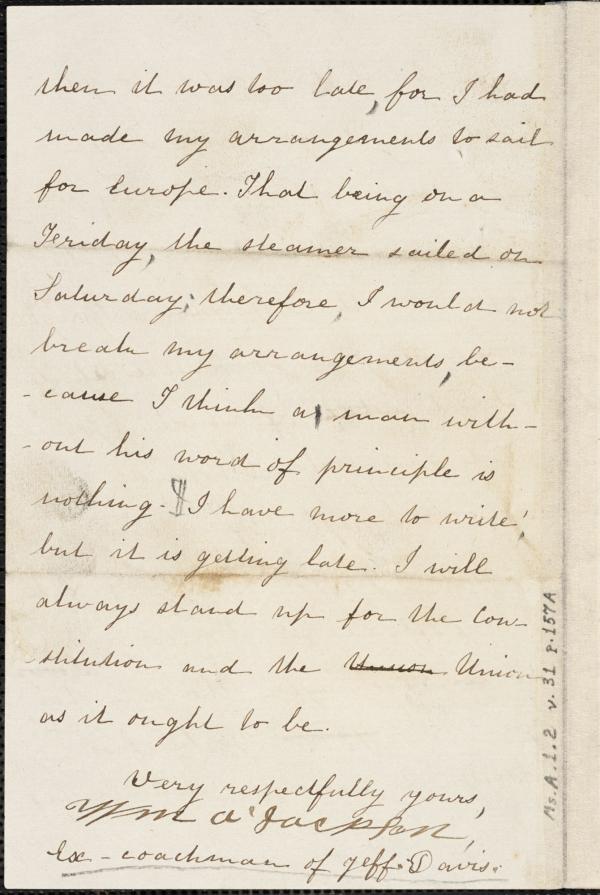 then it was too late, for I had
made my arrangements to sail
for Europe. That being on a
Feriday, the steamer sailed on
Saturday; therefore, I would not
break my arrangements, be-
-cause I think a man with-
-out his word of principle is
nothing. I have more to write!
but it is getting late. I will
always stand up for the Con-
-stitution and the Union Union
as it ought to be.
Very respectfully yours,
Wm A Jackson,
Ex-coachman of Jeff. Davis.
Ms. A. 1. 2 v. 31 p. 157A